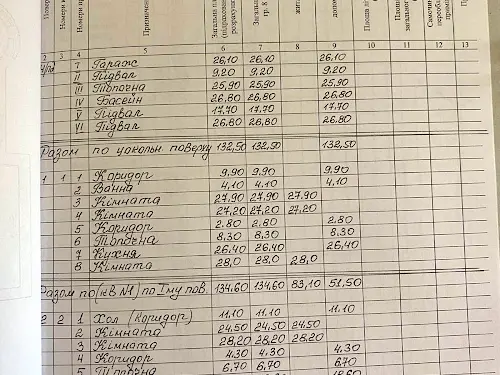 2 3 4 5 6 7 8 9 10 11 12 13
I Гараж 26,10 26,10 26,10
II Підвал 9,20 9,20 9,20
III Топочна 25,90 25,90 25,90
IV Басейн 26,80 26,80 26,80
V Підвал 17,70 17,70 17,70
VI Підвал 26,80 26,80 26,80
Разом по цокольн. поверху 132,50 132,50 132,50
1 1 1 Коридор 9,90 9,90 9,90
2 Ванна 4,10 4,10 4,10
3 Кімната 27,90 27,90 27,90
4 Кімната 27,20 27,20 27,20
5 Коридор 2,80 2,80 2,80
6 Топочна 8,30 8,30 8,30
7 Кухня 26,40 26,40 26,40
8 Кімната 28,0 28,0 28,0
Разом по (кв №1) по Iму пов. 134,60 134,60 83,10 51,50
2 2 1 Хол (коридор) 11,10 11,10 11,10
2 Кімната 24,50 24,50 24,50
3 Кімната 28,20 28,20 28,20
4 Коридор 4,30 4,30 4,30
5 Топочна 6,70 6,70 6,70